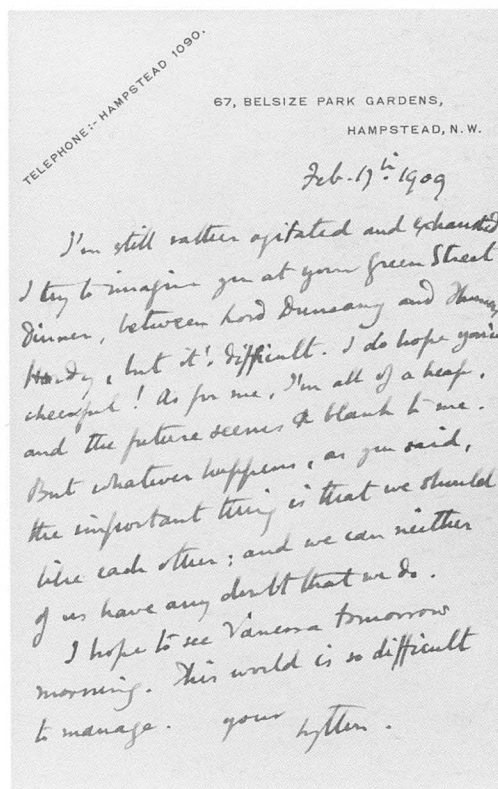 TELEPHONE:- HAMPSTEAD 1090.
67, BELSIZE PARK GARDENS,
HAMPSTEAD, N.W.
Feb. 17th 1909
I'm still rather agitated and exhausted
I try to imagine you at your Green Street
Dinner, between Lord Dunsany and
Hardy, but it's difficult. I do hope you're
cheerful! As for me, I'm all of a heap,
and the future seems a blank to me.
But whatever happens, as you said,
the important thing is that we should
like each other; and we can neither
of us have any doubt that we do.
I hope to see Vanessa tomorrow
morning. This world is so difficult
to manage. your
Lytton.